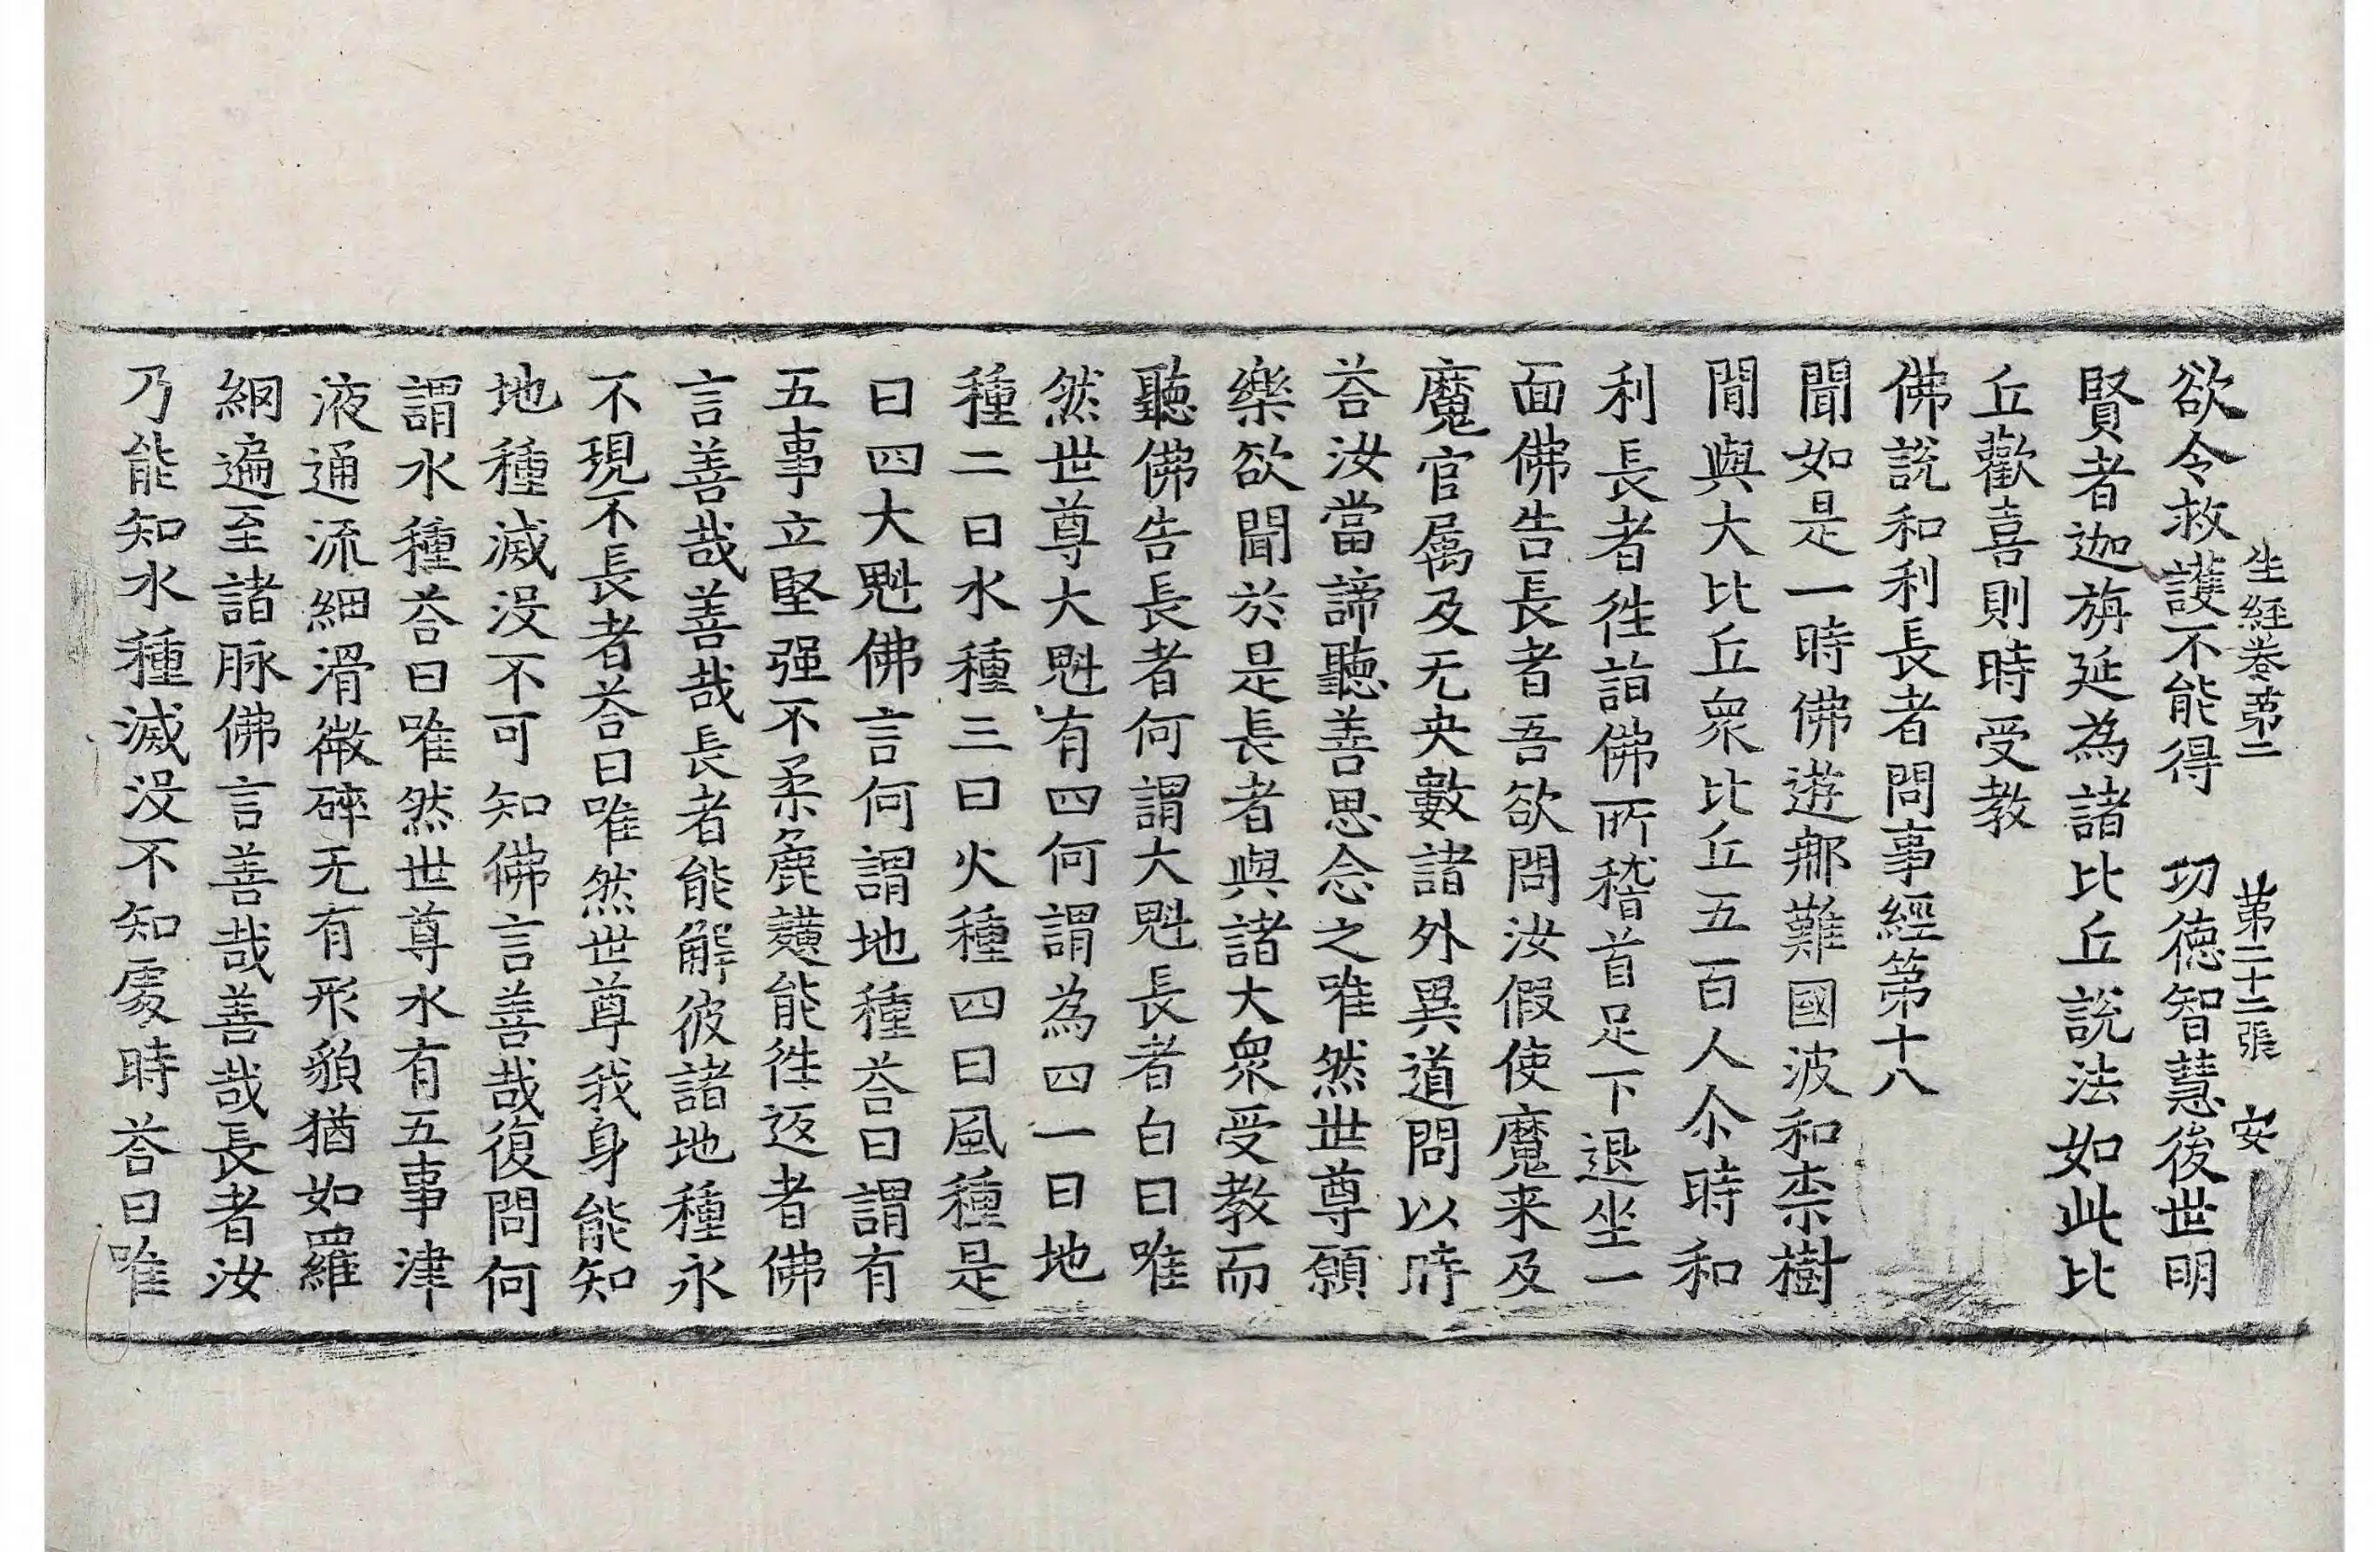 生經卷第二　第二十二張　安
欲令救護不能得　功德智慧後世明
賢者迦旃延為諸比丘說法如此比
丘歡喜則時受教
佛說和利長者問事經第十八
聞如是一時佛遊那難國波和柰樹
間與大比丘衆比丘五百人尒時和
利長者徃詣佛所稽首足下退坐一
面佛告長者吾欲問汝假使魔来及
魔官属及无央數諸外異道問以時
荅汝當諦聽善思念之唯然世尊願
樂欲聞於是長者與諸大衆受教而
聽佛告長者何謂大㔟長者白曰唯
然世尊大㔟有四何謂為四一曰地
種二曰水種三曰火種四曰風種是
曰四大㔟佛言何謂地種荅曰謂有
五事立堅强不柔麁𪍿能徃返者佛
言善哉善哉長者能解彼諸地種永
不現不長者荅曰唯然世尊我身能知
地種滅没不可知佛言善哉復問何
謂水種荅曰唯然世尊水有五事津
液通流細滑微碎无有形貌猶如羅
網遍至諸脉佛言善哉善哉長者汝
乃能知水種滅没不知處時荅曰唯